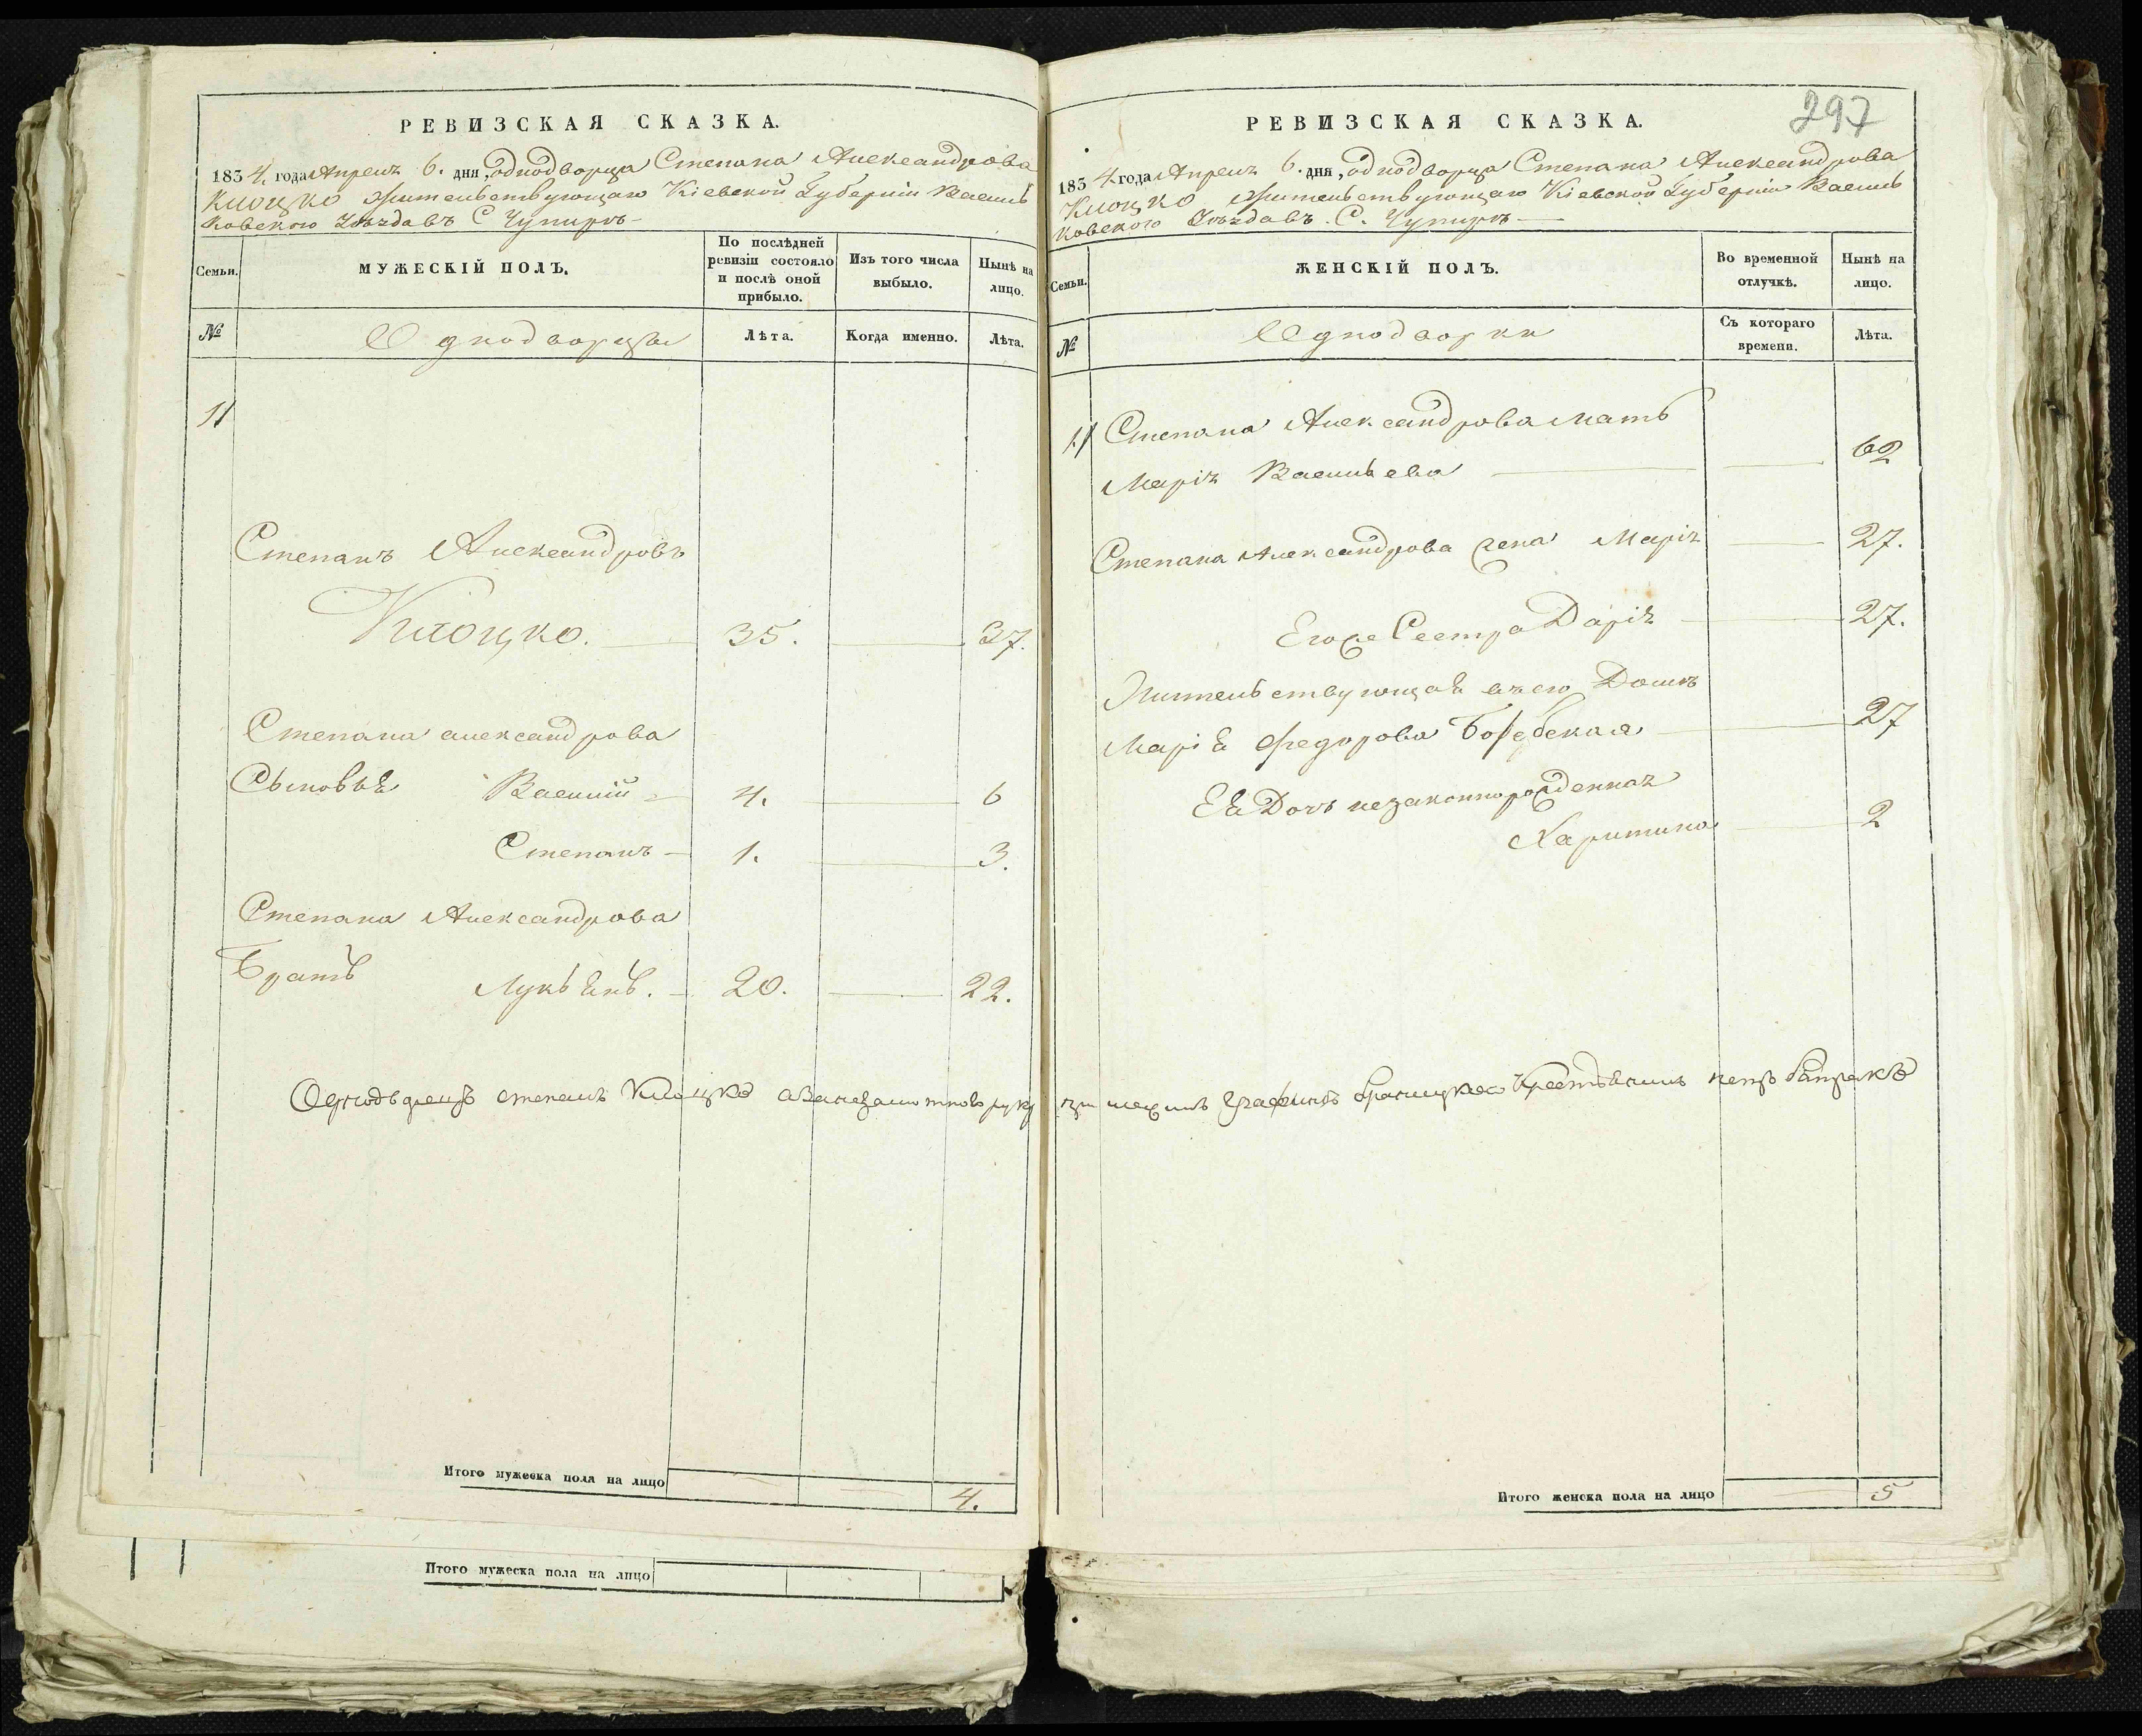 РЕВИЗСКАЯ СКАЗКА.
1834 года Апреля 6. дня, однодворца Степана Александрова
Клюцко Жительствующаго Кіевской Губерніи Василь
ковского Уѣзда въ С Чупирѣ
Семьи.
МУЖЕСКІЙ ПОЛЪ.
По послѣдней
ревизіи состояло
и послѣ оной
прибыло.
Изъ того числа
выбыло.
Нынѣ на
лицо.
№
Однодворцы
Лѣта.
Когда именно.
Лѣта.
11
Степанъ Александровъ
Клюцко. 35. 37.
Степана александрова
Сыновья Василій 4. 6
Степанъ 1. 3.
Степана Александрова
Братъ Лукьянъ. 20. 22.
Однодворецъ степанъ Клюцко
Итого мужеска пола на лицо
4.
Итого мужеска пола на лицо
297
РЕВИЗСКАЯ СКАЗКА.
1834 года Апреля 6. дня, однодворца Степана Александрова
Клюцко Жительствующаго Кіевской Губерніи Василь
ковского Уѣзда въ С. Чупирѣ
Семьи.
ЖЕНСКІЙ ПОЛЪ.
Во временной
отлучкѣ.
Нынѣ на
лицо.
№
Однодворки
Съ котораго
времени.
Лѣта.
11 Степана Александрова Мать
Марія Васильева 62
Степана Александрова жена Марія 27.
Его же Сестра Дарія 27.
Жительствующая въ его Домѣ
Марія Федорова 27
Ея Дочь незаконнорожденная
Харитина 2
Итого женска пола на лицо
5